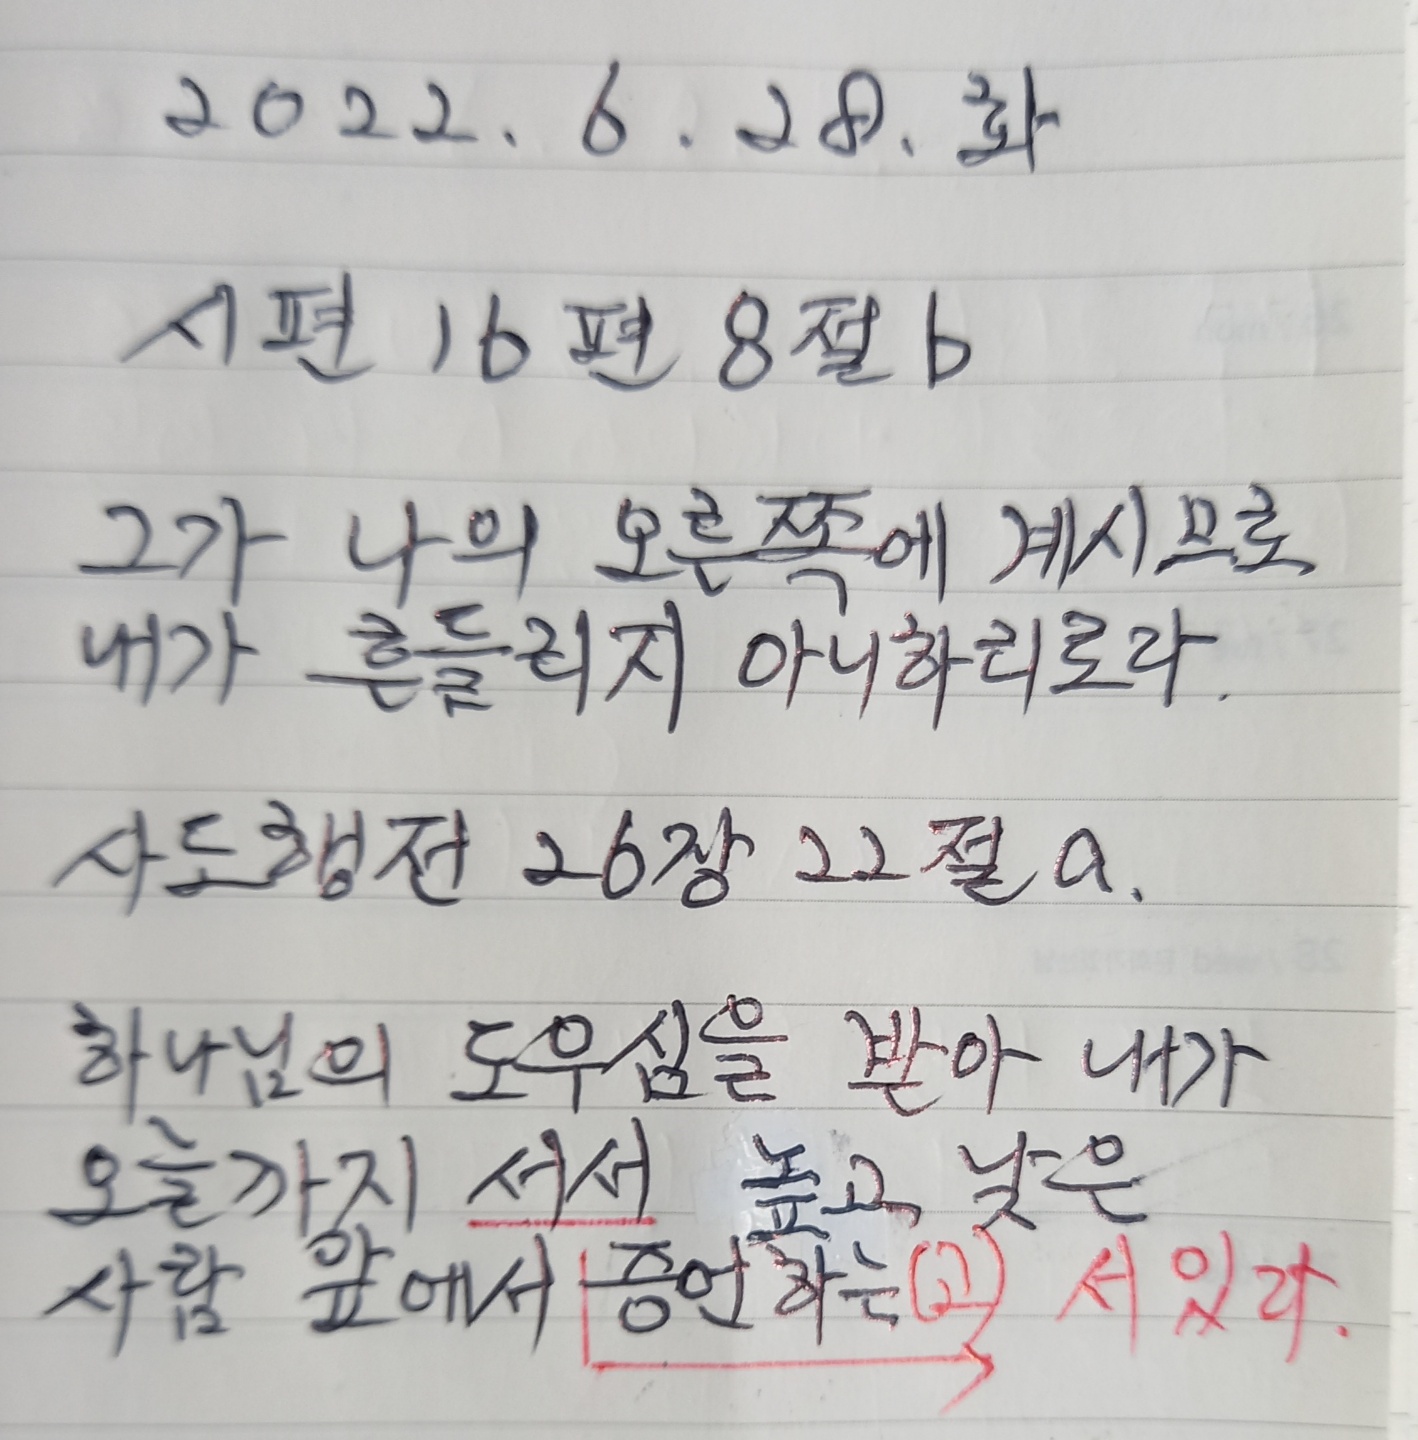 2022. 6. 28. 화
시편 16편 8절 b
그가 나의 오른쪽에 계시므로
내가 흔들리지 아니하리로다.
사도행전 26장 22절 a.
하나님의 도우심을 받아 내가
오늘까지 서서 높고 낮은
사람 앞에서 증언하는(고) 서 있다.